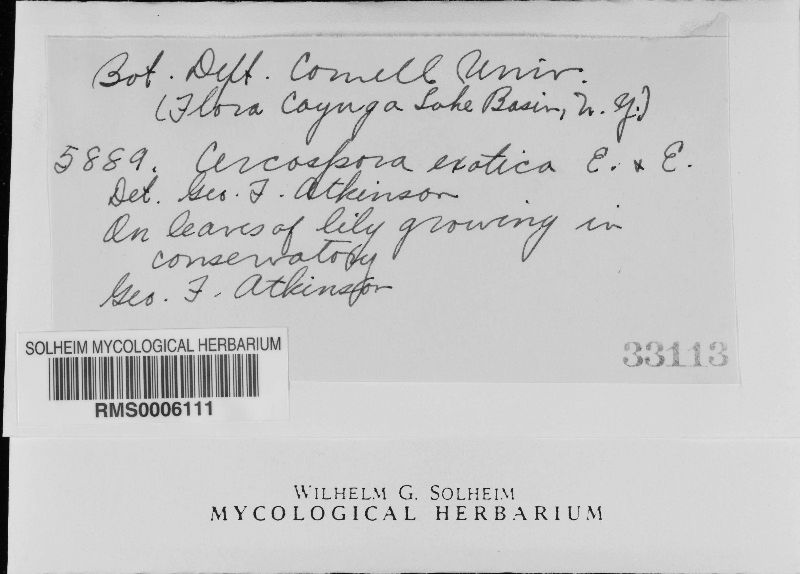 Bot. Dept. Cornell Univ.
(Flora Cayuga Lake Basin, N. Y.)
5889. Cercospora exotica E. & E.
Det. Geo. F. Atkinson
On leaves of lily growing in
conservatory
Geo. F. Atkinson
SOLHEIM MYCOLOGICAL HERBARIUM
RMS0006111
33113
WILHELM G. SOLHEIM
MYCOLOGICAL HERBARIUM